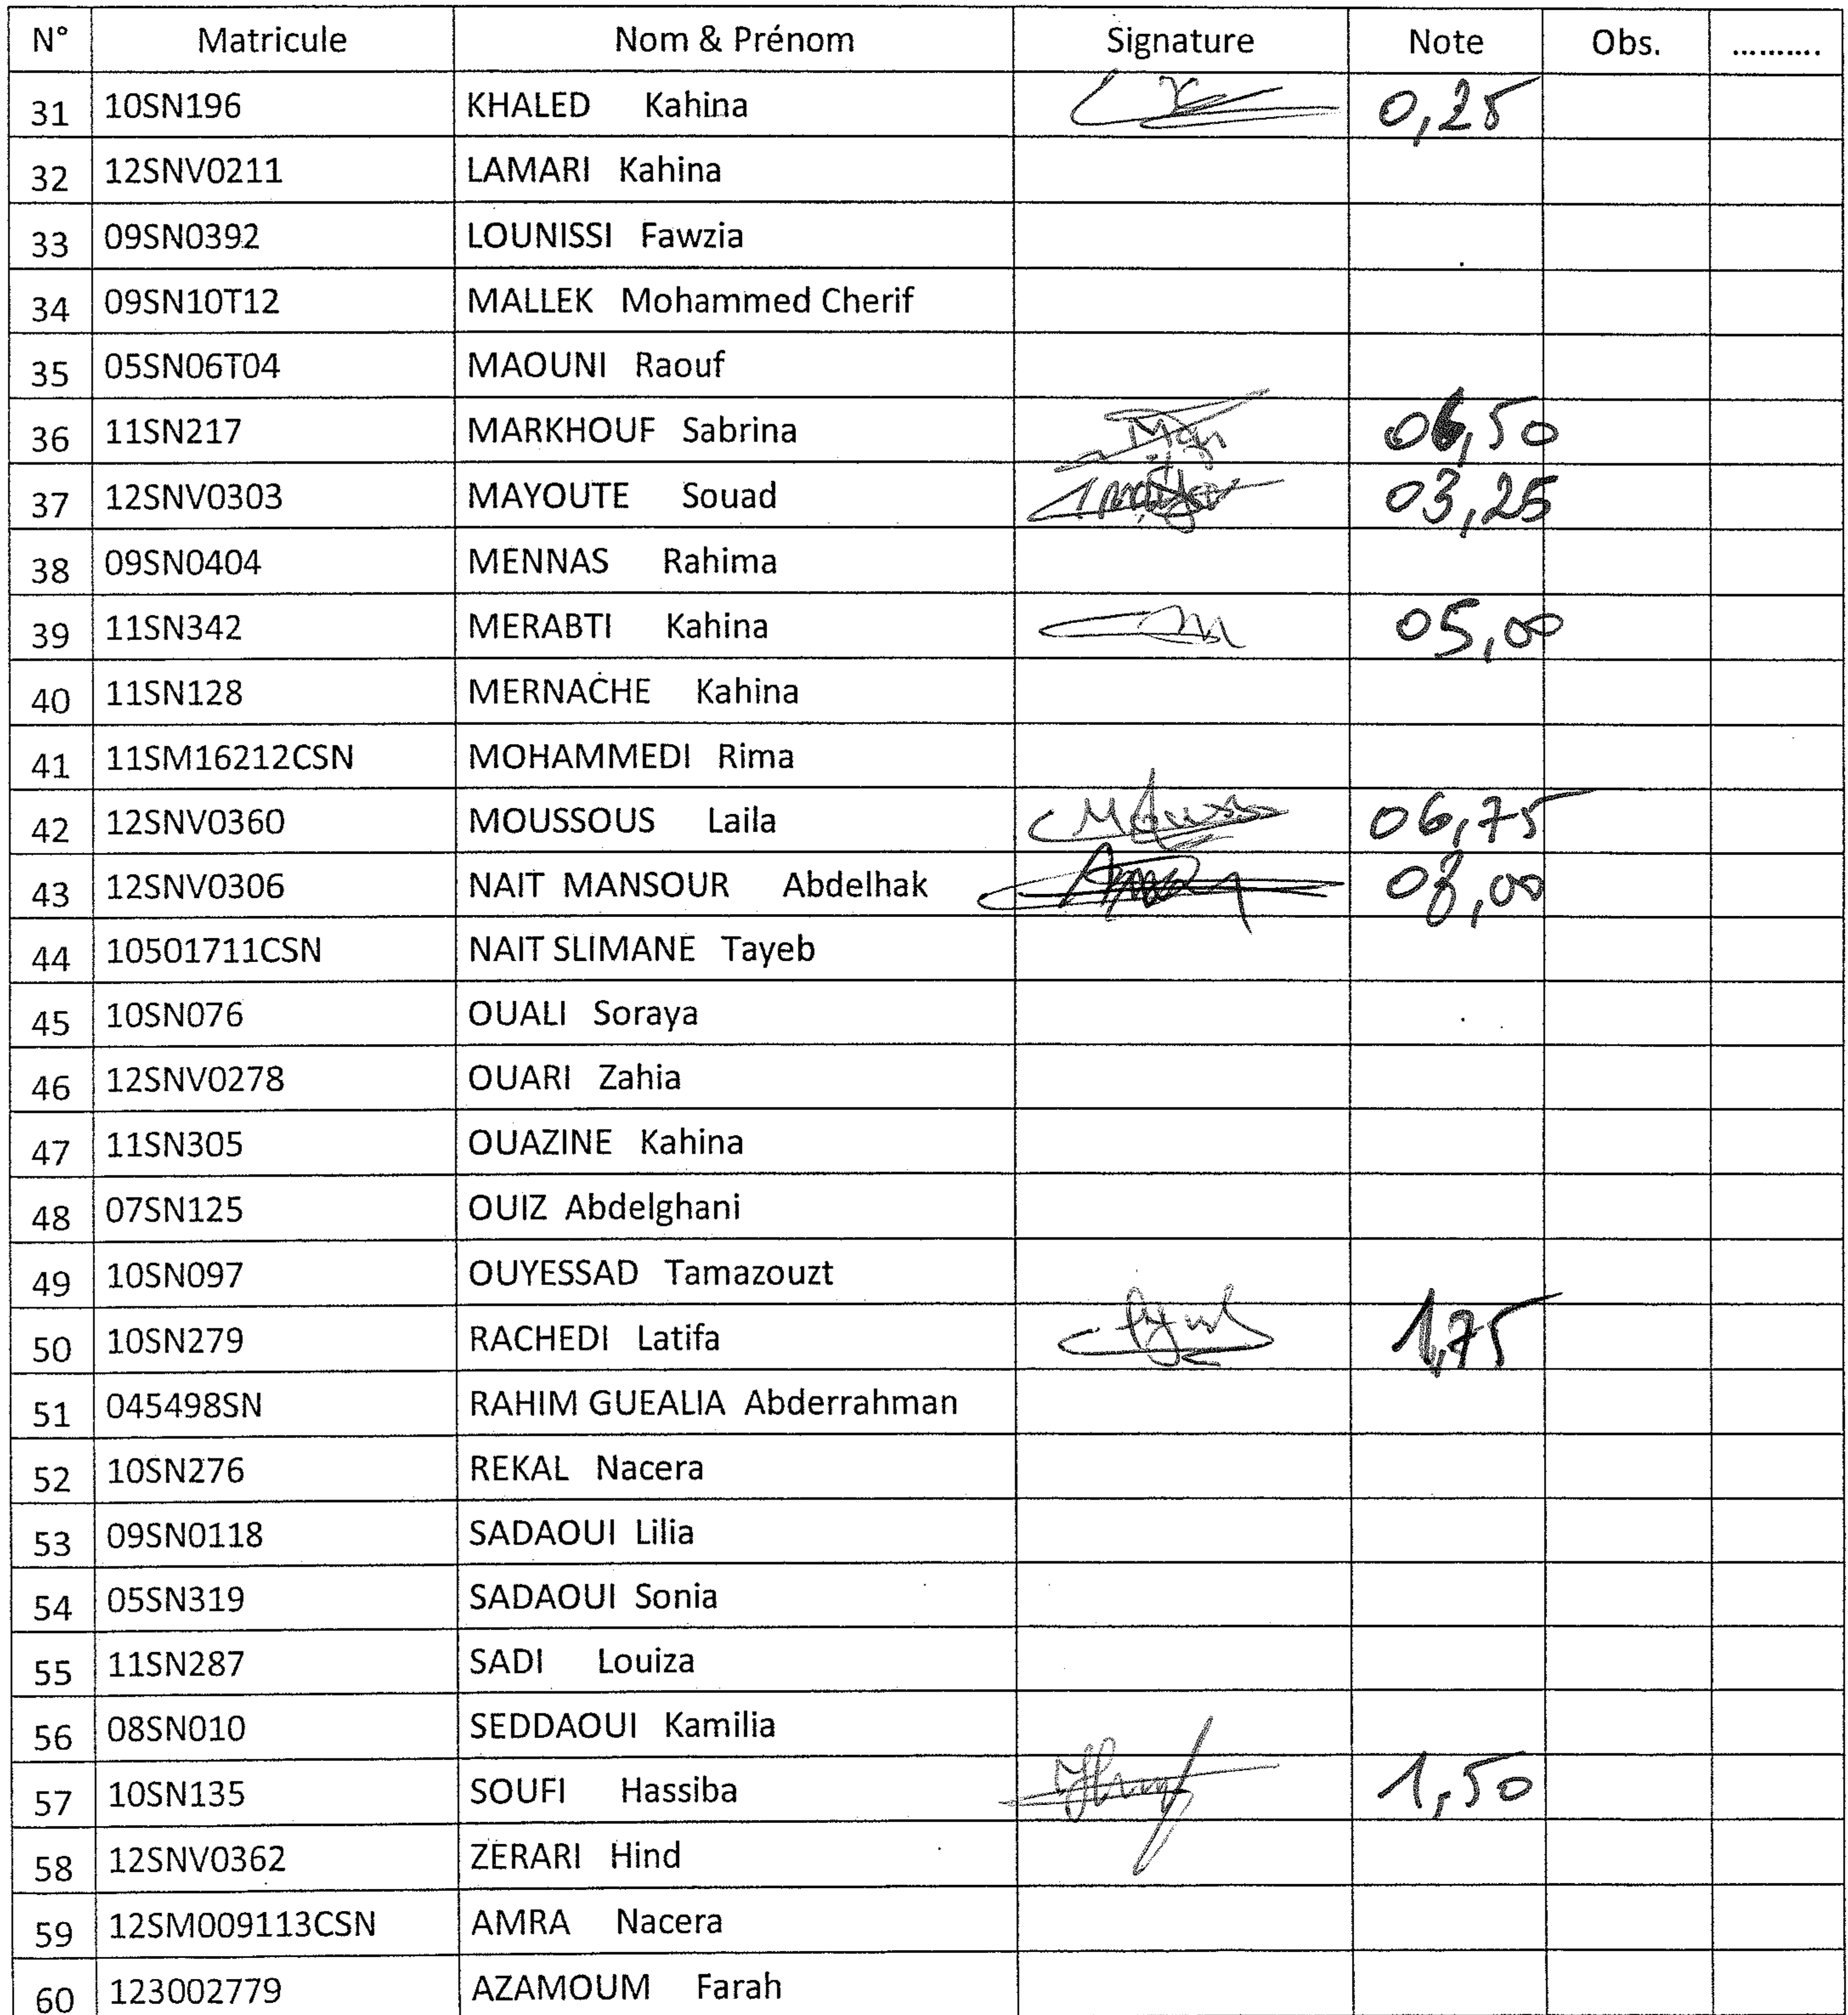 N° Matricule Nom & Prénom Signature Note Obs. ..........
31 10SN196 KHALED Kahina 0,25
32 12SNV0211 LAMARI Kahina
33 09SN0392 LOUNISSI Fawzia
34 09SN10T12 MALLEK Mohammed Cherif
35 05SN06T04 MAOUNI Raouf
36 11SN217 MARKHOUF Sabrina 06,50
37 12SNV0303 MAYOUTE Souad 03,25
38 09SN0404 MENNAS Rahima
39 11SN342 MERABTI Kahina 05,00
40 11SN128 MERNACHE Kahina
41 11SM16212CSN MOHAMMEDI Rima
42 12SNV0360 MOUSSOUS Laila 06,75
43 12SNV0306 NAIT MANSOUR Abdelhak
44 10501711CSN NAIT SLIMANE Tayeb
45 10SN076 OUALI Soraya
46 12SNV0278 OUARI Zahia
47 11SN305 OUAZINE Kahina
48 07SN125 OUIZ Abdelghani
49 10SN097 OUYESSAD Tamazouzt
50 10SN279 RACHEDI Latifa 1,75
51 045498SN RAHIM GUEALIA Abderrahman
52 10SN276 REKAL Nacera
53 09SN0118 SADAOUI Lilia
54 05SN319 SADAOUI Sonia
55 11SN287 SADI Louiza
56 08SN010 SEDDAOUI Kamilia
57 10SN135 SOUFI Hassiba 1,50
58 12SNV0362 ZERARI Hind
59 12SM009113CSN AMRA Nacera
60 123002779 AZAMOUM Farah